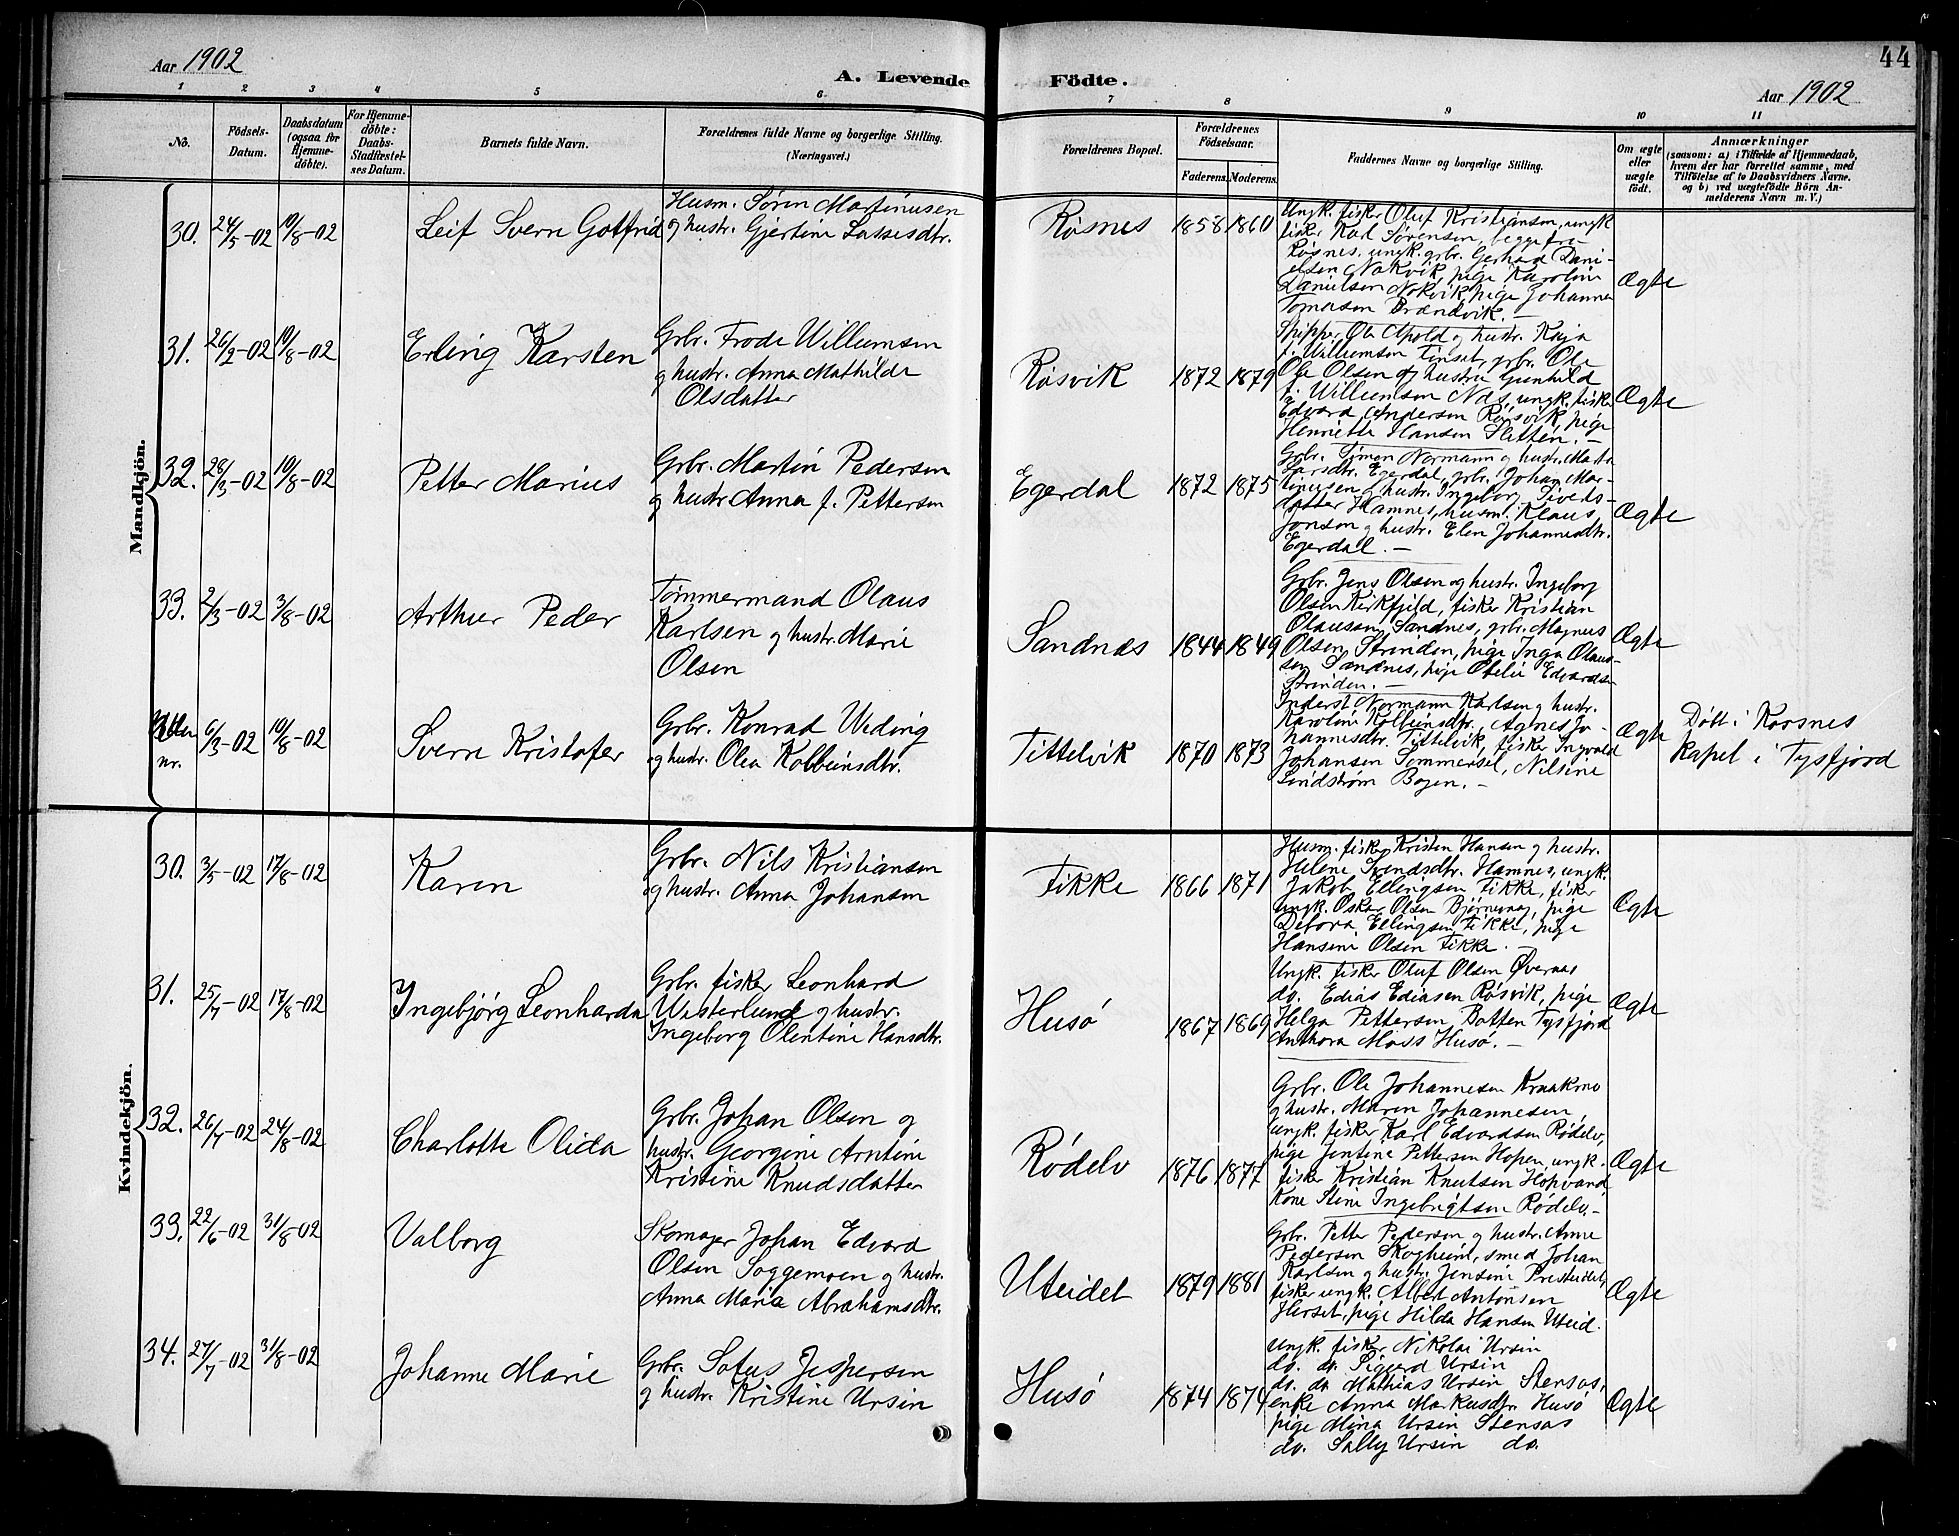 44
Aar 1902
A. Levende Födte.
Aar 1902
1 2 3 4 5 6 7 8 9 10 11
No.
Födsels-
Datum.
Daabsdatum
(ogsaa for
Hjemme-
döbte).
For Hjemme-
döbte:
Daabs-
Stadfæstel-
ses Datum.
Barnets fulde Navn.
Forældrenes fulde Navne og borgerlige Stilling.
(Næringsvei.)
Forældrenes Bopæl.
Forældrenes
Födselsaar.
Faderens. Moderens.
Faddernes Navne og borgerlige Stilling.
Om ægte
eller
uægte
födt.
Anmærkninger
(saasom: a) i Tilfælde af Hjemmedaab,
hvem der har forrettet samme, med
Tilföielse af to Daabsvidners Navne.
og b) ved uægtefödte Börn An-
melderens Navn m. V.)
Mandkjön.
30. 24/5-02 10/8-02 Leif Sverre Gotfrid
Husm. Søren Martinusen
og hustr. Gjertine Lassesdtr.
Røsnes 1858 1860
Ungk. fisker Oluf Kristiansen, ungk
fisker Karl Sørensen, begge fra
Røsnes, ungk. grbr. Gerhard Dani-
elsen Nakvik, pige Karoline
Danielsen Nakvik, pige Johanna
Tomasen Brændvik. -
Ægte
31. 26/2-02 10/8-02 Erling Karsten
Grbr. Frode Willumsen
og hustr. Anna Mathilde
Olsdatter
Røsvik 1872 1879
Skipper Ole Apold og hustr. Kaja
f. Willumsen Tinset, grbr. Ole
Ole Olsen og hustru Gunhild
f. Willumsen Næs, ungk. fisker
Edvard Andersen Røsvik, pige
Henriette Hansen Sletten. -
Ægte
32. 28/3-02 10/8-02 Petter Marius
Grbr. Martin Pedersen
og hustr. Anna f. Pettersen
Egerdal 1872 1875
Grbr. Timan Normann og hustr. Marta
Larsdtr. Egerdal, grbr. Johan Mar-
tinusen og hustr. Ingeborg Sivets-
datter Hamnes, husm. Klaus
Jonsen og hustr. Elen Johannesdtr.
Egerdal. -
Ægte
33. 2/3-02 3/8-02 Arthur Peder
Tømmermand Olaus
Karlsen og hustr. Marie
Olsen
Sandnæs 1844 1849
Grbr. Jens Olsen og hustr. Ingeborg
Olsen Kirkfjeld, fisker Kristian
Olausen Sandnes, grbr. Magnus
Olsen Strinden, pige Inga Olaus-
sen Sandnes, pige Otelie Edvardsen
Strinden. -
Ægte
nr. 6/3-02 10/8-02 Sverre Kristofer
Grbr. Konrad Weding
og hustr. Olea Kolbeinsdtr.
Tittelvik 1870 1873
Inderst Normann Karlsen og hustr.
Karoline Kolbeinsdtr., Agnes Jo-
hannesdtr. Tittelvik, fisker Ingvald
Johansen Sommersel, Nilsine
Lindstrøm Bogen. -
Ægte
Døbt i Korsnes
Kapel i Tysfjord
Kvindekjön.
30. 3/5-02 17/8-02 Karen
Grbr. Nils Kristiansen
og hustr. Anna Johansen
Fikke 1866 1871
Husm. fisker Kristen Hansen og hustr.
Helene Svendsdtr. Hamnes, ungk.
Jakob Ellingsen Fikke, fisker
ungk. Oskar Olsen Bjørnevag, pige
Debora Ellingsen Fikke, pige
Hansine Olsen Fikke. -
Ægte
31. 25/7-02 17/8-02 Ingebjørg Leonharda
Grbr. fisker Leonhard
Westerlund og hustr.
Ingeborg Olentine Hansdtr.
Husø 1867 1869
Ungk. fisker Oluf Olsen Øvernæs
do. Edias Ediasen Røsvik, pige
Helga Pettersen Botten Tysfjord
Anthora Moss Husø. -
Ægte
32. 26/7-02 24/8-02 Charlotte Olida
Grbr. Johan Olsen og
hustr. Georgine Arntine
Kristine Knudsdatter
Rødelv 1876 1877
Grbr. Ole Johannesen Kraakmo
og hustr. Maren Johannesen,
ungk. fisker Karl Edvardsen Rødelv,
pige Jentine Pettersen Hopen, ungk.
fisker Kristian Knutsen Hopvand,
Kone Stine Ingebrigtsen Rødelv. -
Ægte
33. 22/6-02 31/8-02 Valborg
Skomager Johan Edvard
Olsen Soggemoen og hustr.
Anna Maria Abrahamsdtr.
Uteidet 1879 1881
Grbr. Petter Pedersen og hustr. Anne
Pedersen Skogheim, smed Johan
Karlsen og hustr. Jensine Presteidet,
fisker ungk. Albert Antonsen
Herset, pige Hilda Hansen Uteid.
Ægte
34. 27/7-02 31/8-02 Johanne Marie
Grbr. Sofus Jespersen
og hustr. Kristine Ursin
Husø 1874 1874
Ungk. fisker Nikolai Ursin
do. do. Sigurd Ursin
do. do. Mathias Ursin Stensos,
enke Anna Markusdtr. Husø
pige Mina Ursin Stensos
do. Sally Ursin do.
Ægte